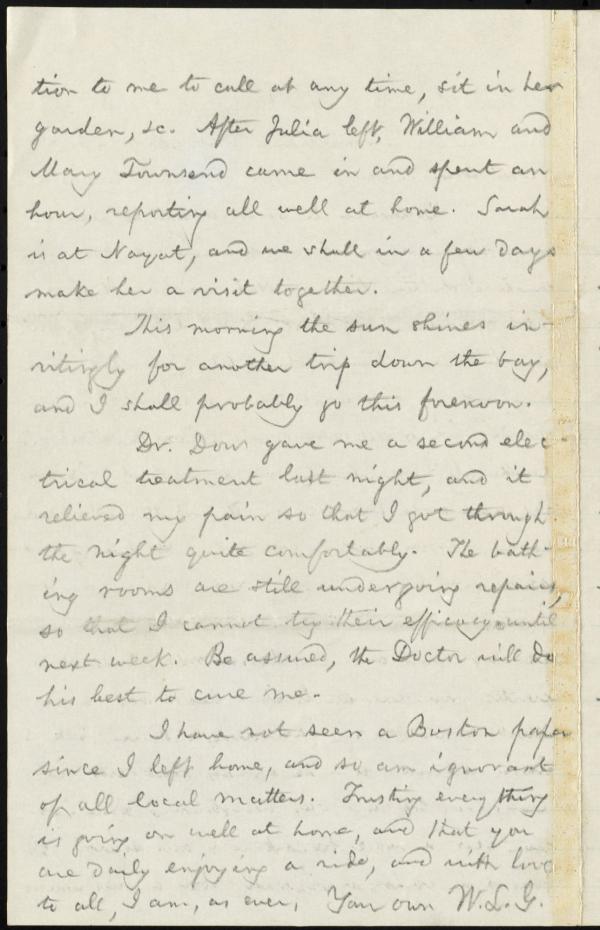 tion to me to call at any time, sit in her
garden, &c. After Julia left, William and
Mary Townsend came in and spent an
hour, reporting all well at home. Sarah
is at Nayat, and we shall in a few days
make her a visit together.
This morning the sun shines in-
vitingly for another trip down the bay,
and I shall probably go this forenoon.
Dr. Dow gave me a second elec-
trical treatment last night, and it
relieved my pain so that I got through
the night quite comfortably. The bath-
ing rooms are still undergoing repairs,
so that I cannot try their efficacy until
next week. Be assured, the Doctor will do
his best to cure me.
I have not seen a Boston paper
since I left home, and so am ignorant
of all local matters. Trusting every thing
is going on well at home, and that you
are daily enjoying a ride, and with love
to all, I am, as ever, Your own W. L. G.